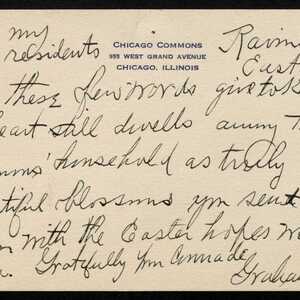 my
residents
CHICAGO COMMONS
955 WEST GRAND AVENUE
CHICAGO, ILLINOIS
Ravin
East
these few words give tok
eart still dwells among
household as truly
tiful blossoms you sent
with the Easter hopes
Gratefully Your Comrade
Graha